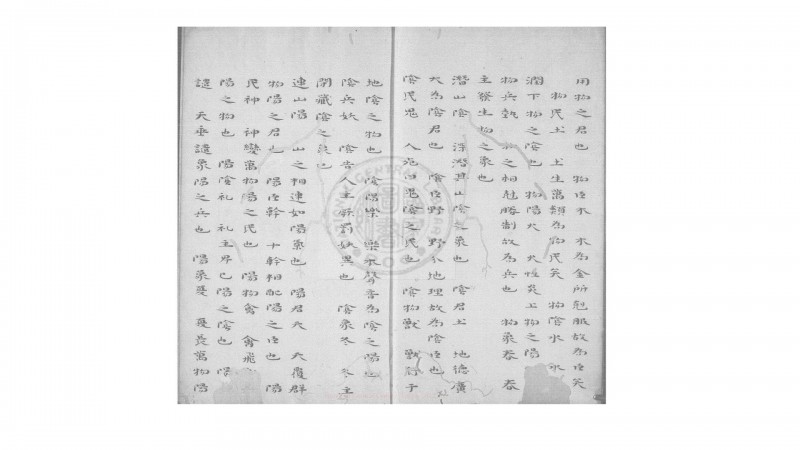 用物之君也　物臣木　木為金所尅服故為臣矣
物民土　土生萬類為物民矣　物陰水　水
潤下物之陰也　物陽火　火性炎上物之陽
物兵執　物之相尅勝制故為兵也　物象春　春
主發生物之象也
潛山陰　浮潛其山陰之象也　陰君土　地德廣
大為陰君也　陰臣野　野分地理故為陰臣也
陰民鬼　人死曰鬼陰之民也　陰物獸　獸行于
地陰之物也　陰陽樂　樂求聲音為陰之陽也
陰兵妖　陰告人主殃罰妖異也　陰象冬　冬主
閉藏陰之象也
連山陽　山之相連如陽氣也　陽君天　天覆群
物陽之君也　陽臣幹　十幹相配陽之臣也　陽
民神　神變萬物陽之民也　陽物禽　禽飛
陽之物也　陽陰礼　礼主卑已陽之陰也　陽
譴　天垂譴象陽之兵也　陽象夏　夏長萬物陽